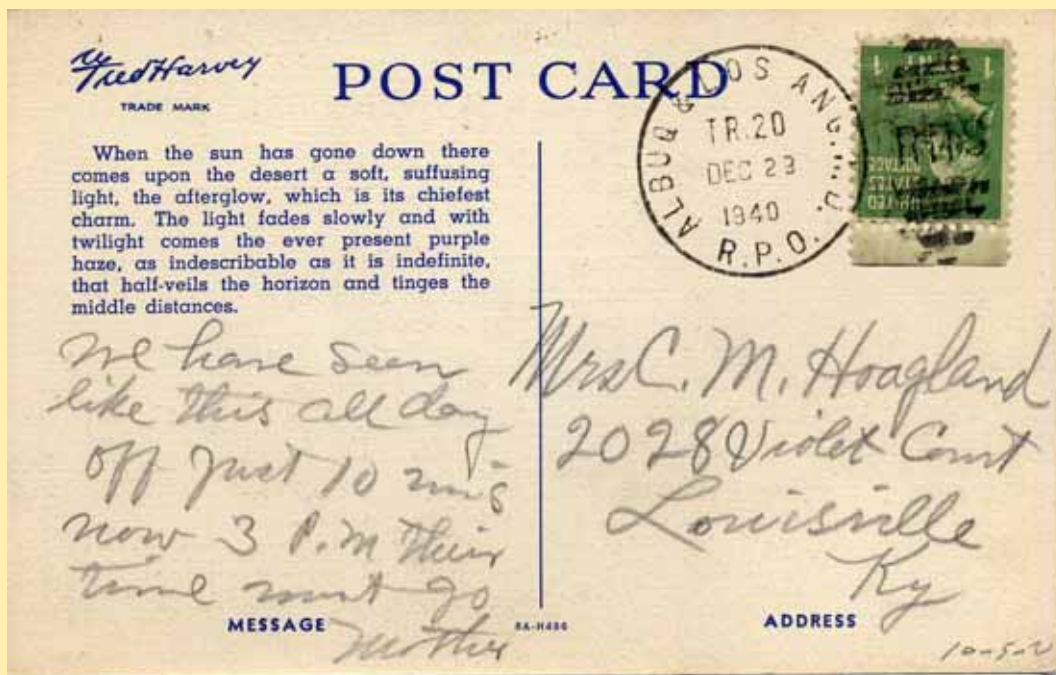 Fred Harvey
TRADE MARK
POST CARD
When the sun has gone down there
comes upon the desert a soft, suffusing
light, the afterglow, which is its chiefest
charm. The light fades slowly and with
twilight comes the ever present purple
haze, as indescribable as it is indefinite,
that half-veils the horizon and tinges the
middle distances.
We have seen
like this all day
off just 10 mins
now 3 P.M their
time must go
Mother
MESSAGE
8A-H486
ALBUQ & LOS ANG.
TR.20
DEC 23
1940
R.P.O.
UNITED
STATES
POSTAGE
1 1
Mrs C. M. Hoagland
2028 Violet Court
Louisville
Ky
ADDRESS